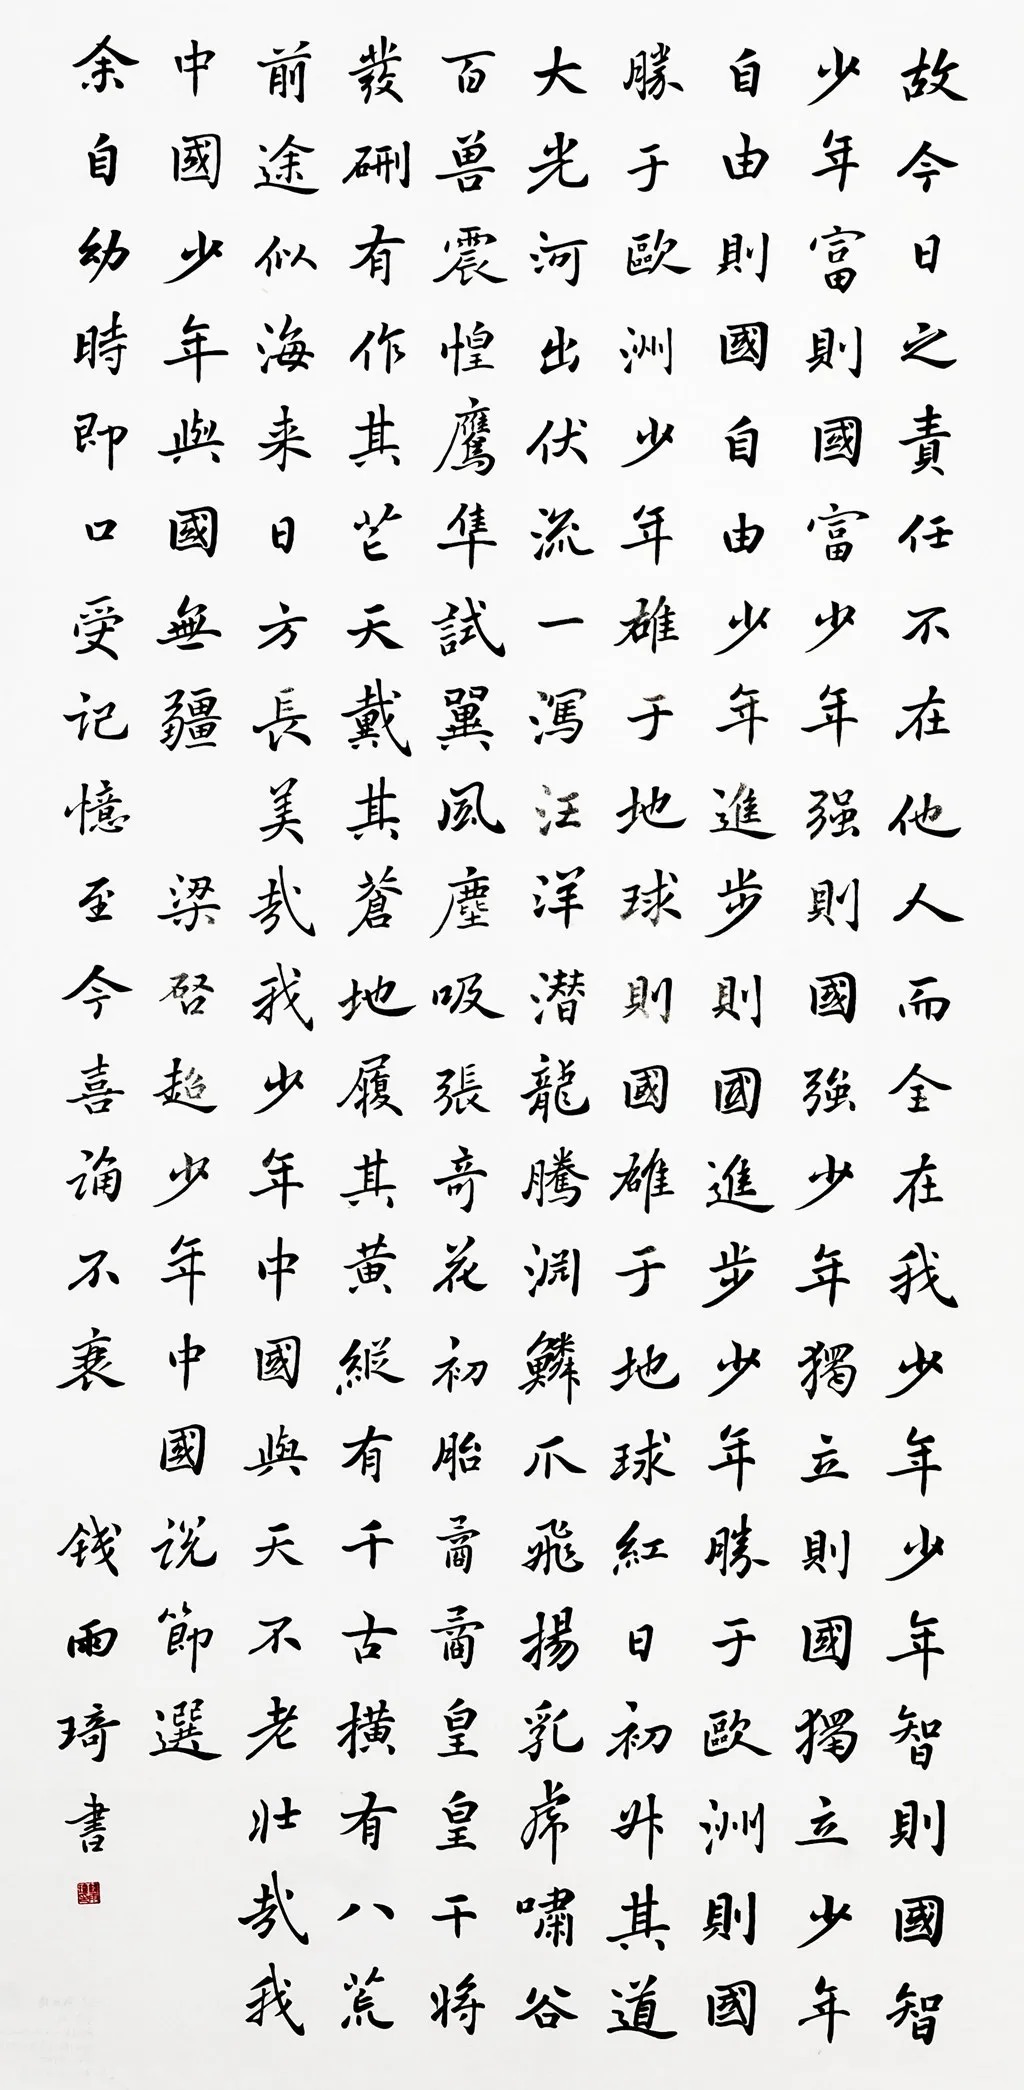 故今日之責任不在他人而全在我少年少年智則國智
少年富則國富少年强則國強少年獨立則國獨立少年
自由則國自由少年進步則國進步少年勝于歐洲則國
勝于歐洲少年雄于地球則國雄于地球紅日初升其道
大光河出伏流一瀉汪洋潜龍騰淵鱗爪飛揚乳虎嘯谷
百兽震惶鷹隼試翼風塵吸張奇花初胎矞矞皇皇干将
發硎有作其芒天戴其蒼地履其黄縱有千古横有八荒
前途似海来日方長美哉我少年中國與天不老壯哉我
中國少年與國無疆 梁啓超少年中國説節選
余自幼時即口受记憶至今喜誦不衰 钱雨琦書